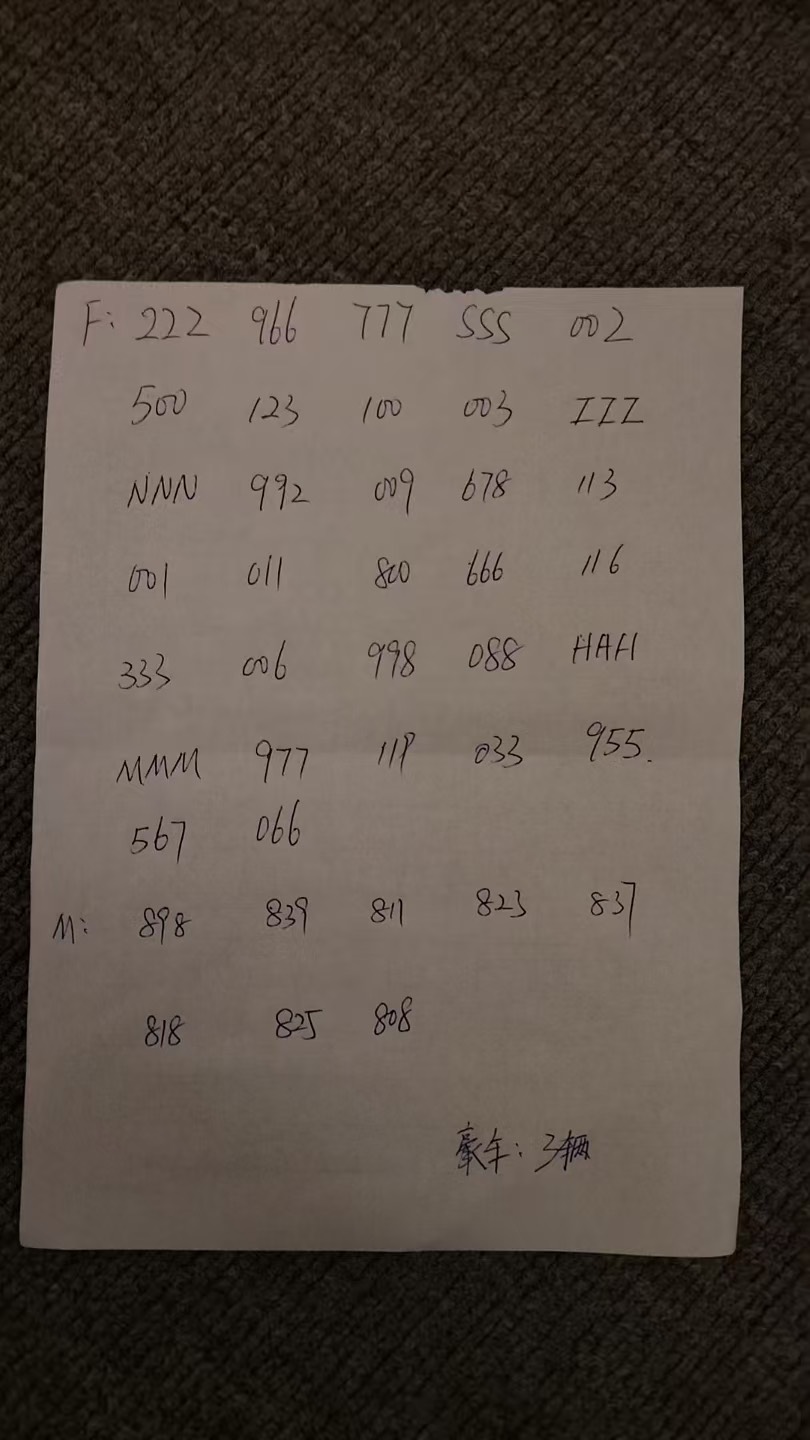 F: 222 966 777 SSS 002
500 123 100 003 ZZZ
NNN 992 009 678 113
001 011 800 666 116
333 006 998 088 HAH
MMM 977 119 033 955.
567 066
M: 898 839 811 823 837
818 825 808
豪车: 3辆